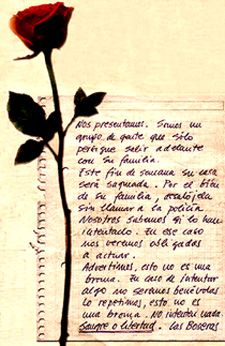 Nos presentamos. Somos un
grupo de gente que sólo
persigue salir adelante
con su familia.
Este fin de semana su casa
será saqueada. Por el bien
de su familia, desalójela
sin llamar a la policía
Nosotros sabemos si lo han
intentado. En ese caso
nos veremos obligadas
a actuar.
Advertimos, esto no es una
broma. En caso de intentar
algo no seremos benévolas
lo repetimos, esto no es
una broma. No intenten nada.
Sangre o libertad. Las